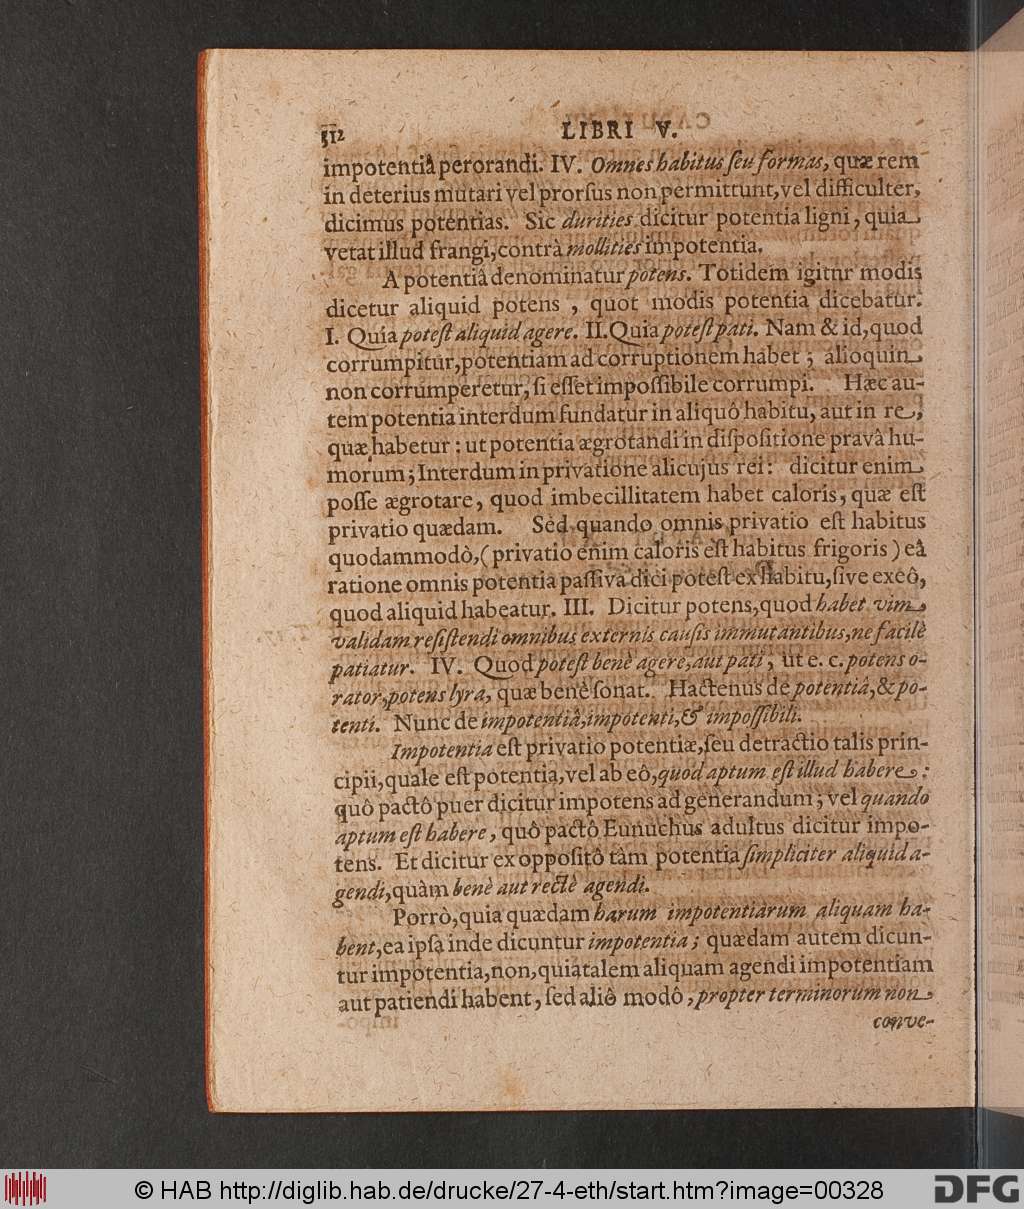 512 LIBRI V.
impotentiâ perorandi. IV. Omnes habitus ſeu formas, quæ rem
in deterius mutari vel prorſus non permittunt, vel difficulter,
dicimus potentias. Sic durities dicitur potentia ligni, quia
vetat illud frangi, contrà mollities impotentia.
A potentiâ denominatur potens. Totidem igitur modis
dicetur aliquid potens, quot modis potentia dicebatur.
I. Quia poteſt aliquid agere. II. Quia poteſt pati. Nam & id, quod
corrumpitur, potentiam ad corruptionem habet; alioquin
non corrumperetur, ſi eſſet impoſſibile corrumpi. Hæc au-
tem potentia interdum fundatur in aliquô habitu, aut in re,
quæ habetur: ut potentia ægrotandi in diſpoſitione pravâ hu-
morum; Interdum in privatione alicujus rei: dicitur enim
poſſe ægrotare, quod imbecillitatem habet caloris, quæ eſt
privatio quædam. Sed quando omnis privatio eſt habitus
quodammodò, (privatio enim caloris eſt habitus frigoris) eâ
ratione omnis potentia paſſiva dici poteſt ex habitu, ſive ex eô,
quod aliquid habeatur. III. Dicitur potens, quod habet vim
validam reſiſtendi omnibus externis cauſis immutantibus, ne facilè
patiatur. IV. Quod poteſt benè agere, aut pati, ut e. c. potens o-
rator, potens lyra, quæ benè ſonat. Hactenus de potentiâ, & po-
tenti. Nunc de impotentiâ, impotenti, & impoſſibili.
Impotentia eſt privatio potentiæ, ſeu detractio talis prin-
cipii, quale eſt potentia, vel ab eô, quod aptum eſt illud habere:
quô pactô puer dicitur impotens ad generandum; vel quando
aptum eſt habere, quô pactô Eunuchus adultus dicitur impo-
tens. Et dicitur ex oppoſitô tàm potentia ſimpliciter aliquid a-
gendi, quàm benè aut rectè agendi.
Porrò, quia quædam harum impotentiarum aliquam ha-
bent, ea ipſa inde dicuntur impotentia; quædam autem dicun-
tur impotentia, non, quia talem aliquam agendi impotentiam
aut patiendi habent, ſed aliô modô, propter terminorum non
conve-
© HAB http://diglib.hab.de/drucke/27-4-eth/start.htm?image=00328 DFG